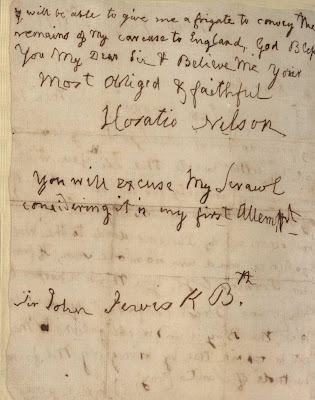 will be able to give me a frigate to convey the
remains of my carcase to England, God Bless
You My Dear Sir & Believe Me Your
Most Obliged & faithful
Horatio Nelson
You will excuse My Scrawl
considering it is my first Attempt
Sir John Jervis K B.th